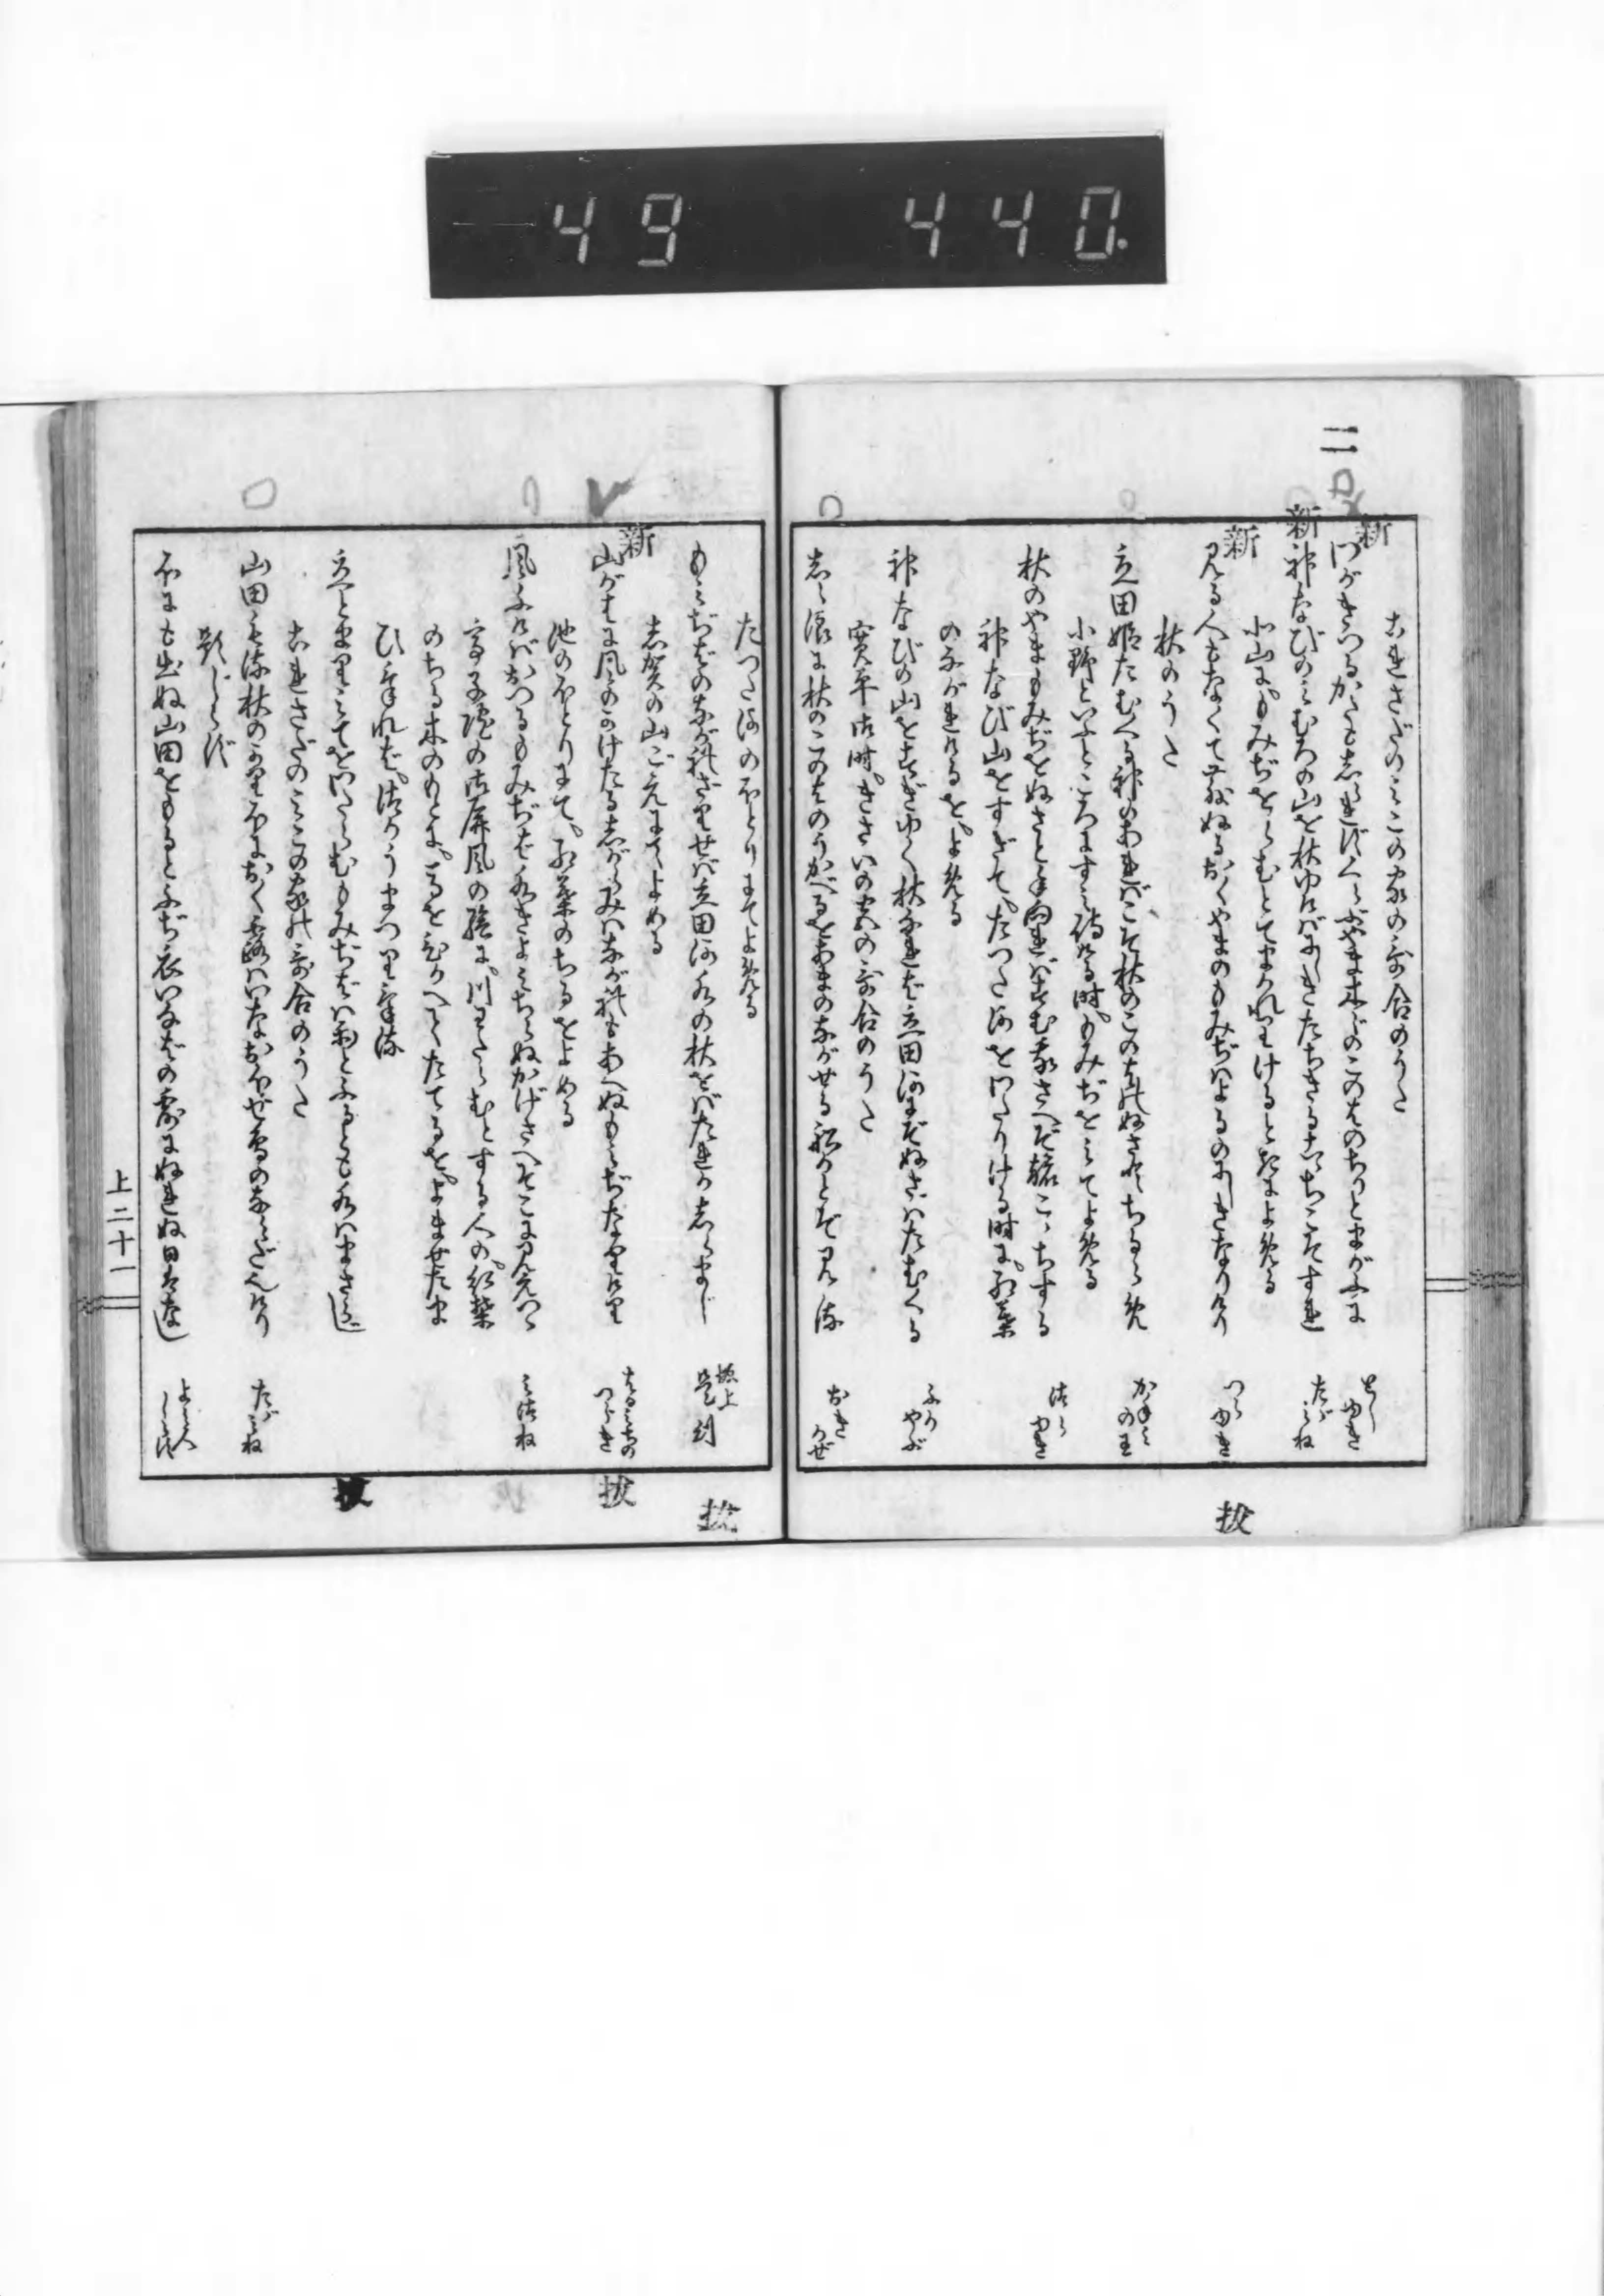 49 440.
二
新
新
新
これさだのみこの家の哥合のうた
わがきつるかたもしられずくらぶやま木ゞのこのはのちるとまがふに
としゆき
神なびのみむろの山を秋ゆけばにしきたちきるこゝちこそすれ
たゞみね
北山に。もみぢをらむとてまかれりけるときによめる
見る人もなくて散ぬるおくやまのもみぢはよるのにしきなりけり
つらゆき
秋のうた
立田姫たむくる神のあればこそ秋のこのはのぬさとちるらめ
かねみの王
小野といふところにすみ侍ける時。もみぢをみてよめる
秋のやまもみぢをぬさと手向ればすむ我さへぞ旅こゝちする
つらゆき
神なび山をすぎて。たつた河をわたりける時に。紅葉
のながれけるを。よめる
神なびの山をすぎゆく秋なれば立田河にぞぬさはたむくる
ふかやぶ
寛平御時。きさいの宮の哥合のうた
しら浪に秋のこのはのうかべるをあまのながせる舩かとぞ見る
おきかぜ
抜
新
たつた河のほとりにてよめる
もみぢばのながれざりせば立田河水の秋をばたれかしらまし
坂上是則
志賀の山ごえにてよめる
山がはに風のかけたるしがらみはながれもあへぬもみぢなりけり
はるみちのつらき
池のほとりにて。紅葉のちるをよめる
風ふけばおつるもみぢば水きよみちらぬかげさへそこに見えつゝ
みつね
亭子院の御屏風の繪に。川わたらむとする人の。紅葉
のちる木のもとに。馬をひかへてたてるを。よませたま
ひければ。つかうまつりける
立とまりみてをわたらむもみぢばは雨とふるとも水はまさらじ
これさだのみこの家の哥合のうた
山田もる秋のかりほにおく露はいなおほせ鳥のなみだなりけり
たゞみね
題しらず
ほにも出ぬ山田をもるとふぢ衣いなばの露にぬれぬ日はなし
よみ人しらず
上二十一
抜
抜
抜